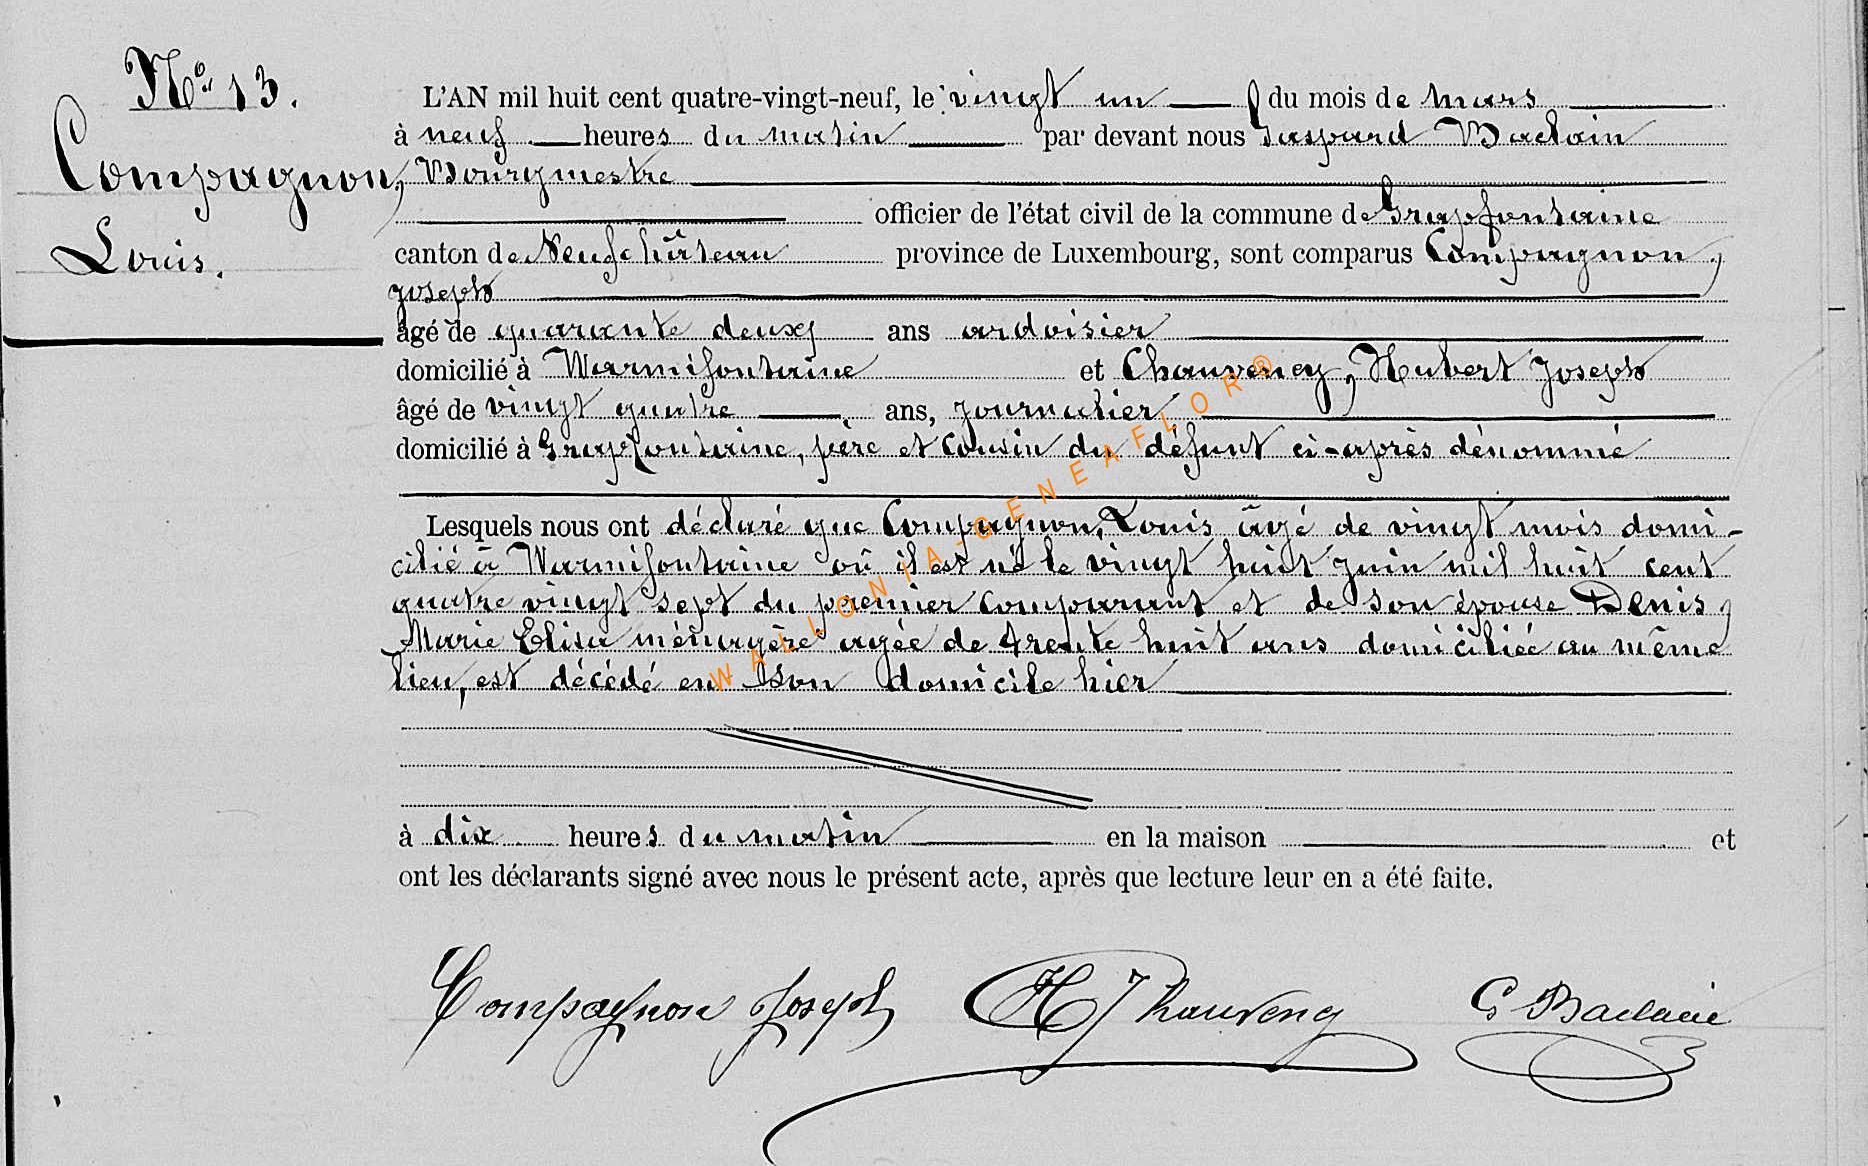 N° 13.
Compagnon,
Louis.
L'AN mil huit cent quatre-vingt-neuf, le vingt un du mois de mars
à neuf heures du matin par devant nous Gaspard Baclain
Bourgmestre
officier de l'état civil de la commune de Grapfontaine
canton de Neufchâteau province de Luxembourg, sont comparus Compagnon,
Joseph
âgé de quarante deux ans ardoisier
domicilié à Warmifontaine et Chauveney, Hubert Joseph
âgé de vingt quatre ans, journalier
domicilié à Grapfontaine, père et cousin du défunt ci-après dénommé
Lesquels nous ont déclaré que Compagnon, Louis âgé de vingt mois domi-
cilié à Warmifontaine où il est né le vingt huit juin mil huit cent
quatre vingt sept du premier comparant et de son épouse Denis,
Marie Elisa ménagère agée de trente huit ans domiciliée au même
lieu, est décédé en son domicile hier
à dix heures du matin en la maison et
ont les déclarants signé avec nous le présent acte, après que lecture leur en a été faite.
Compagnon Joseph HJ Chauveney G Baclain
WALLONIA-GENEAFLOR®